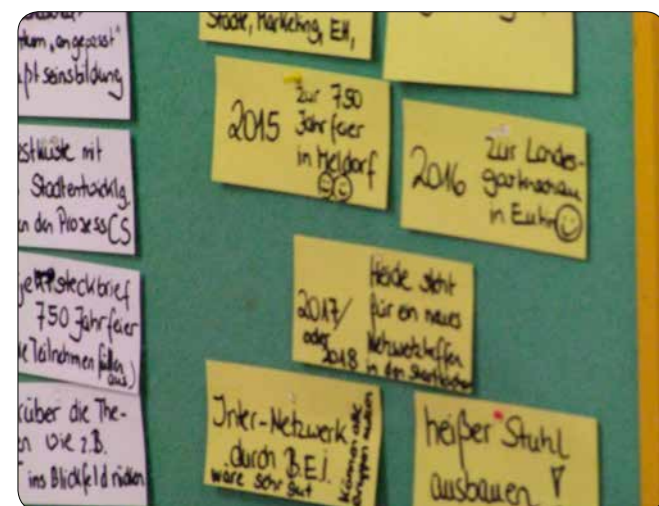 "angepasst"
seinsbildung
mit
Stadtentwicklg.
den Prozess CS
steckbrief
750 Jahrfeier
Teilnehmen füllen
aus)
über die The-
wie z.B.
ins Blickfeld rücken
Städte, Marketing, EH,
2015 zur 750
Jahrfeier
in Meldorf
2016 zur Landes-
gartenschau
in Eutin
2017/
oder
2018
Heide steht
für ein neues
Netzwerktreffen
in den Startlöchern
Inter-Netzwerk
durch B.E.I.
wäre sehr gut
können alle
Gruppen nutzen
heißer Stuhl
ausbauen!